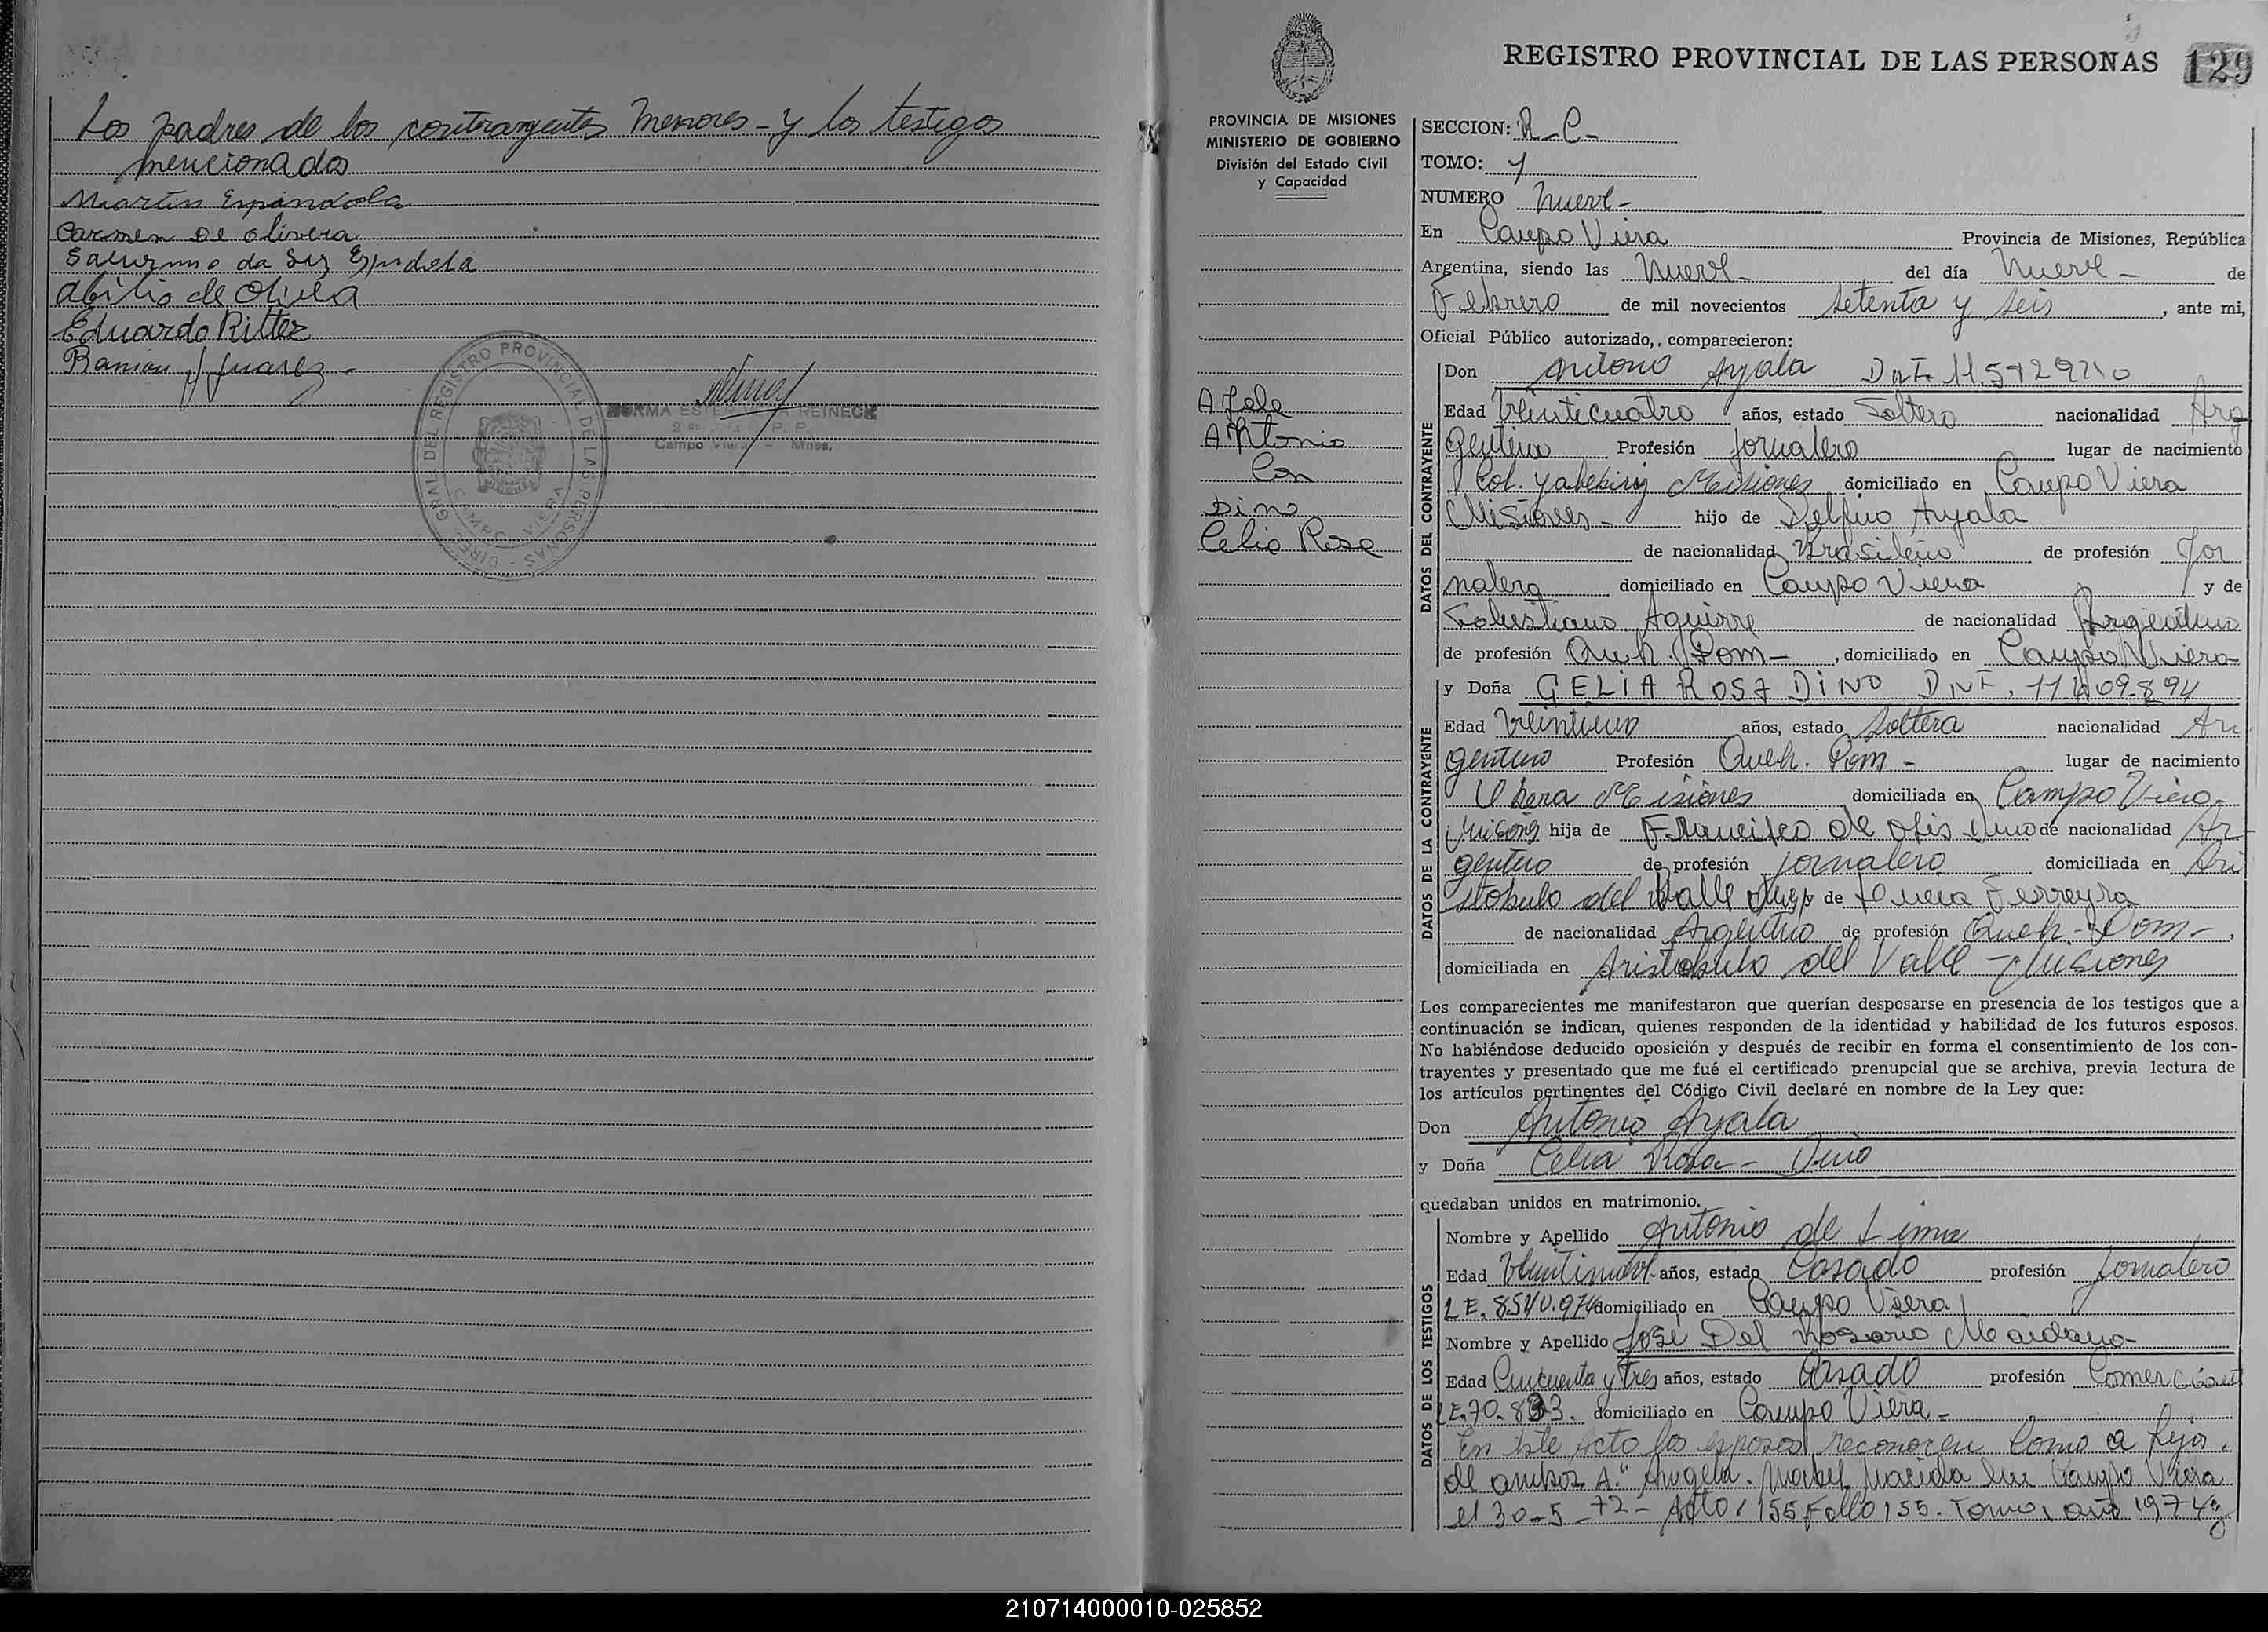 Los padres de los contrayentes menores - y los testigos
mencionados
Martin Espindola
Carmen De olivera
da Espindola
Abilio de
Eduardo Ritter
Ramon Juarez -
DIREC. GRAL. DEL REGISTRO PROVINCIAL DE LAS PERSONAS
CAMPO VIERA
NORMA ESTER REINECK
Campo Viera - Mnes.
REGISTRO PROVINCIAL DE LAS PERSONAS 129
PROVINCIA DE MISIONES
MINISTERIO DE GOBIERNO
División del Estado Civil
y Capacidad
Antonio
Con
Dino
Celia Rosa
SECCION: R-C-
TOMO: 1
NUMERO nueve -
En Campo Viera Provincia de Misiones, República
Argentina, siendo las nueve - del día nueve - de
Febrero de mil novecientos setenta y seis, ante mi,
Oficial Público autorizado,, comparecieron:
DATOS DEL CONTRAYENTE
Don Antonio Ayala D.N.I.
Edad veinticuatro años, estado Soltero nacionalidad Arg
gentino Profesión jornalero lugar de nacimiento
Col. Yabebiry Misiones domiciliado en Campo Viera
Misiones - hijo de Delfino Ayala
de nacionalidad Brasileño de profesión Jor
nalero domiciliado en Campo Viera y de
Aguirre de nacionalidad Argentina
de profesión Queh. Dom - , domiciliado en Campo Viera
DATOS DE LA CONTRAYENTE
y Doña CELIA ROSA DINO DNI. 11.409.894
Edad veintiuno años, estado soltera nacionalidad Ar
gentino Profesión Queh. Dom - lugar de nacimiento
Obera Misiones domiciliada en Campo Viera
Misiones hija de Francisco de Asis Dino de nacionalidad Ar
gentino de profesión jornalero domiciliada en Ari
stobulo del Valle y de Ferreyra
de nacionalidad Argentino de profesión Queh. Dom -,
domiciliada en Aristobulo del Valle - Misiones
Los comparecientes me manifestaron que querían desposarse en presencia de los testigos que a
continuación se indican, quienes responden de la identidad y habilidad de los futuros esposos.
No habiéndose deducido oposición y después de recibir en forma el consentimiento de los con-
trayentes y presentado que me fué el certificado prenupcial que se archiva, previa lectura de
los artículos pertinentes del Código Civil declaré en nombre de la Ley que:
Don Antonio Ayala
y Doña Celia Rosa - Dino
quedaban unidos en matrimonio.
DATOS DE LOS TESTIGOS
Nombre y Apellido Antonio de Lima
Edad veintinueve años, estado Casado profesión Jornalero
L E. 8.540.974 domiciliado en Campo Viera
Nombre y Apellido José Del Rosario
Edad Cincuenta y tres años, estado Casado profesión Comerciant
domiciliado en Campo Viera -
En este acto los esposos reconocen como a hija
de ambos a Angela Mabel nacida en Campo Viera
el 30-5-72 - Acto 155 Folio 155. Tomo 1 año 1974
210714000010-025852